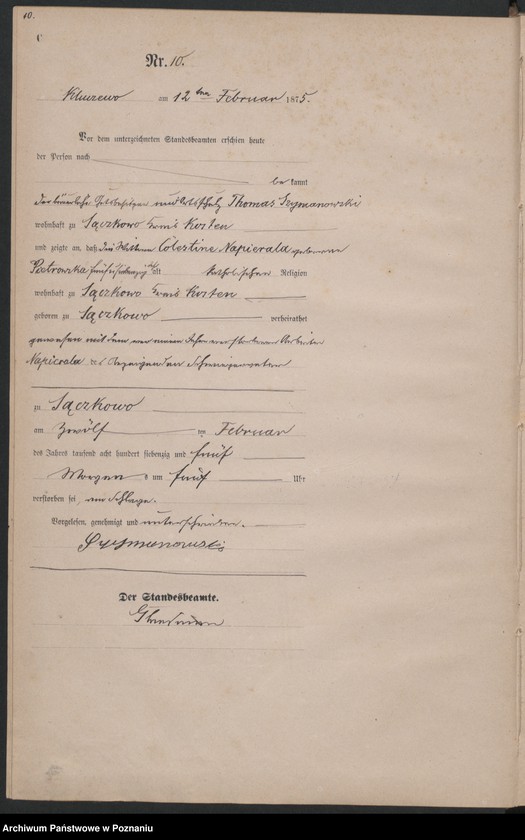 10.
C
Nr. 10.
Kluczewo am 12 ten Februar 1875.
Vor dem unterzeichneten Standesbeamten erschien heute
der Person nach
be kannt
der bäuerliche Gutsbesitzer und Ortsschulz Thomas Szymanowski
wohnhaft zu Sączkowo Kreis Kosten
und zeigte an, daß die Wittwe Cölestine Napierala geborene
Piotrowska alt katholischer Religion
wohnhaft zu Sączkowo Kreis Kosten
geboren zu Sączkowo verheirathet
gewesen mit dem vor einem Jahre verstorbenen Arbeiter
Napierala, des Anzeigenden Schwiegervater
zu Sączkowo
am zwölf ten Februar
des Jahres tausend acht hundert siebenzig und fünf
Morgens um fünf Uhr
verstorben sei, am Schlage.
Vorgelesen, genehmigt und unterschrieben.
Szymanowski
Der Standesbeamte.
Archiwum Państwowe w Poznaniu